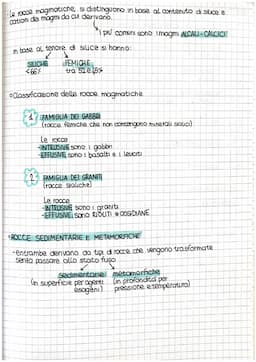 Le rocce magmatiche, si distinguono in base al contenuto di silice e
cationi dei magmi da cui derivano.
i più comuni sono i magmi ALCALI-CALCICI
In base al tenore di silice si hanno:
SIALICHE FEMICHE
<66% tra 52 e 45%
Classificazione delle rocce magmatiche
1 FAMIGLIA DEI GABBRI
(rocce femiche che non contengono minerali sialici)
Le rocce
-INTRUSIVE sono i gabbri
-EFFUSIVE sono i basalti e i
2 FAMIGLIA DEI GRANITI
(rocce sialiche)
Le rocce
-INTRUSIVE sono i graniti
-EFFUSIVE sono RIOLITI e OSSIDIANE
ROCCE SEDIMENTARIE E METAMORFICHE
-Entrambe derivano da tipi di rocce che vengono trasformate
senza passare allo stato fuso
sedimentarie metamorfiche
(in superficie per agenti (in profondità per
esogeni) pressione e temperatura)